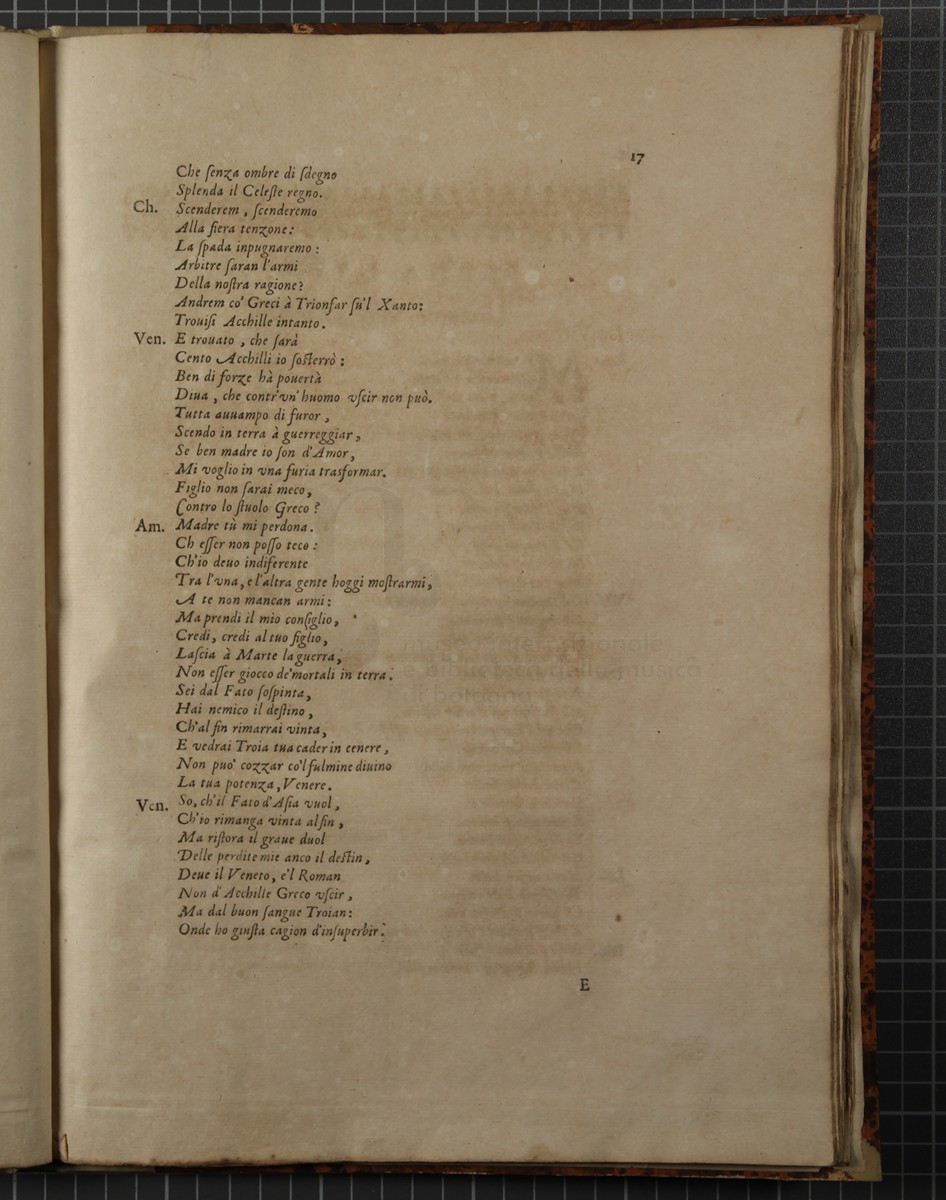 17
Che ſenza ombre di ſdegno
Splenda il Celeſte regno.
Ch. Scenderem, ſcenderemo
Alla fiera tenzone:
La ſpada inpugnaremo:
Arbitre ſaran l'armi
Della noſtra ragione?
Andrem co' Greci à Trionfar ſu'l Xanto:
Trouiſi Acchille intanto.
Ven. E trouato, che ſarà
Cento Acchilli io ſoſterrò:
Ben di forze hà pouertà
Diua, che contr'vn'huomo vſcir non può.
Tutta auuampo di furor,
Scendo in terra à guerreggiar,
Se ben madre io ſon d'Amor,
Mi voglio in vna furia trasformar.
Figlio non ſarai meco,
Contro lo ſtuolo Greco?
Am. Madre tù mi perdona.
Ch eſſer non poſſo teco:
Ch'io deuo indiferente
Tra l'vna, e l'altra gente hoggi moſtrarmi,
A te non mancan armi:
Ma prendi il mio conſiglio,
Credi, credi al tuo figlio,
Laſcia à Marte la guerra,
Non eſſer giocco de'mortali in terra.
Sei dal Fato ſoſpinta,
Hai nemico il deſtino,
Ch'al fin rimarrai vinta,
E vedrai Troia tua cader in cenere,
Non puo' cozzar co'l fulmine diuino
La tua potenza, Venere.
Ven. So, ch'il Fato d'Aſia vuol,
Ch'io rimanga vinta alfin,
Ma riſtora il graue duol
Delle perdite mie anco il deſtin,
Deue il Veneto, e'l Roman
Non d'Acchille Greco vſcir,
Ma dal buon ſangue Troian:
Onde ho giuſta cagion d'inſuperbir.
E